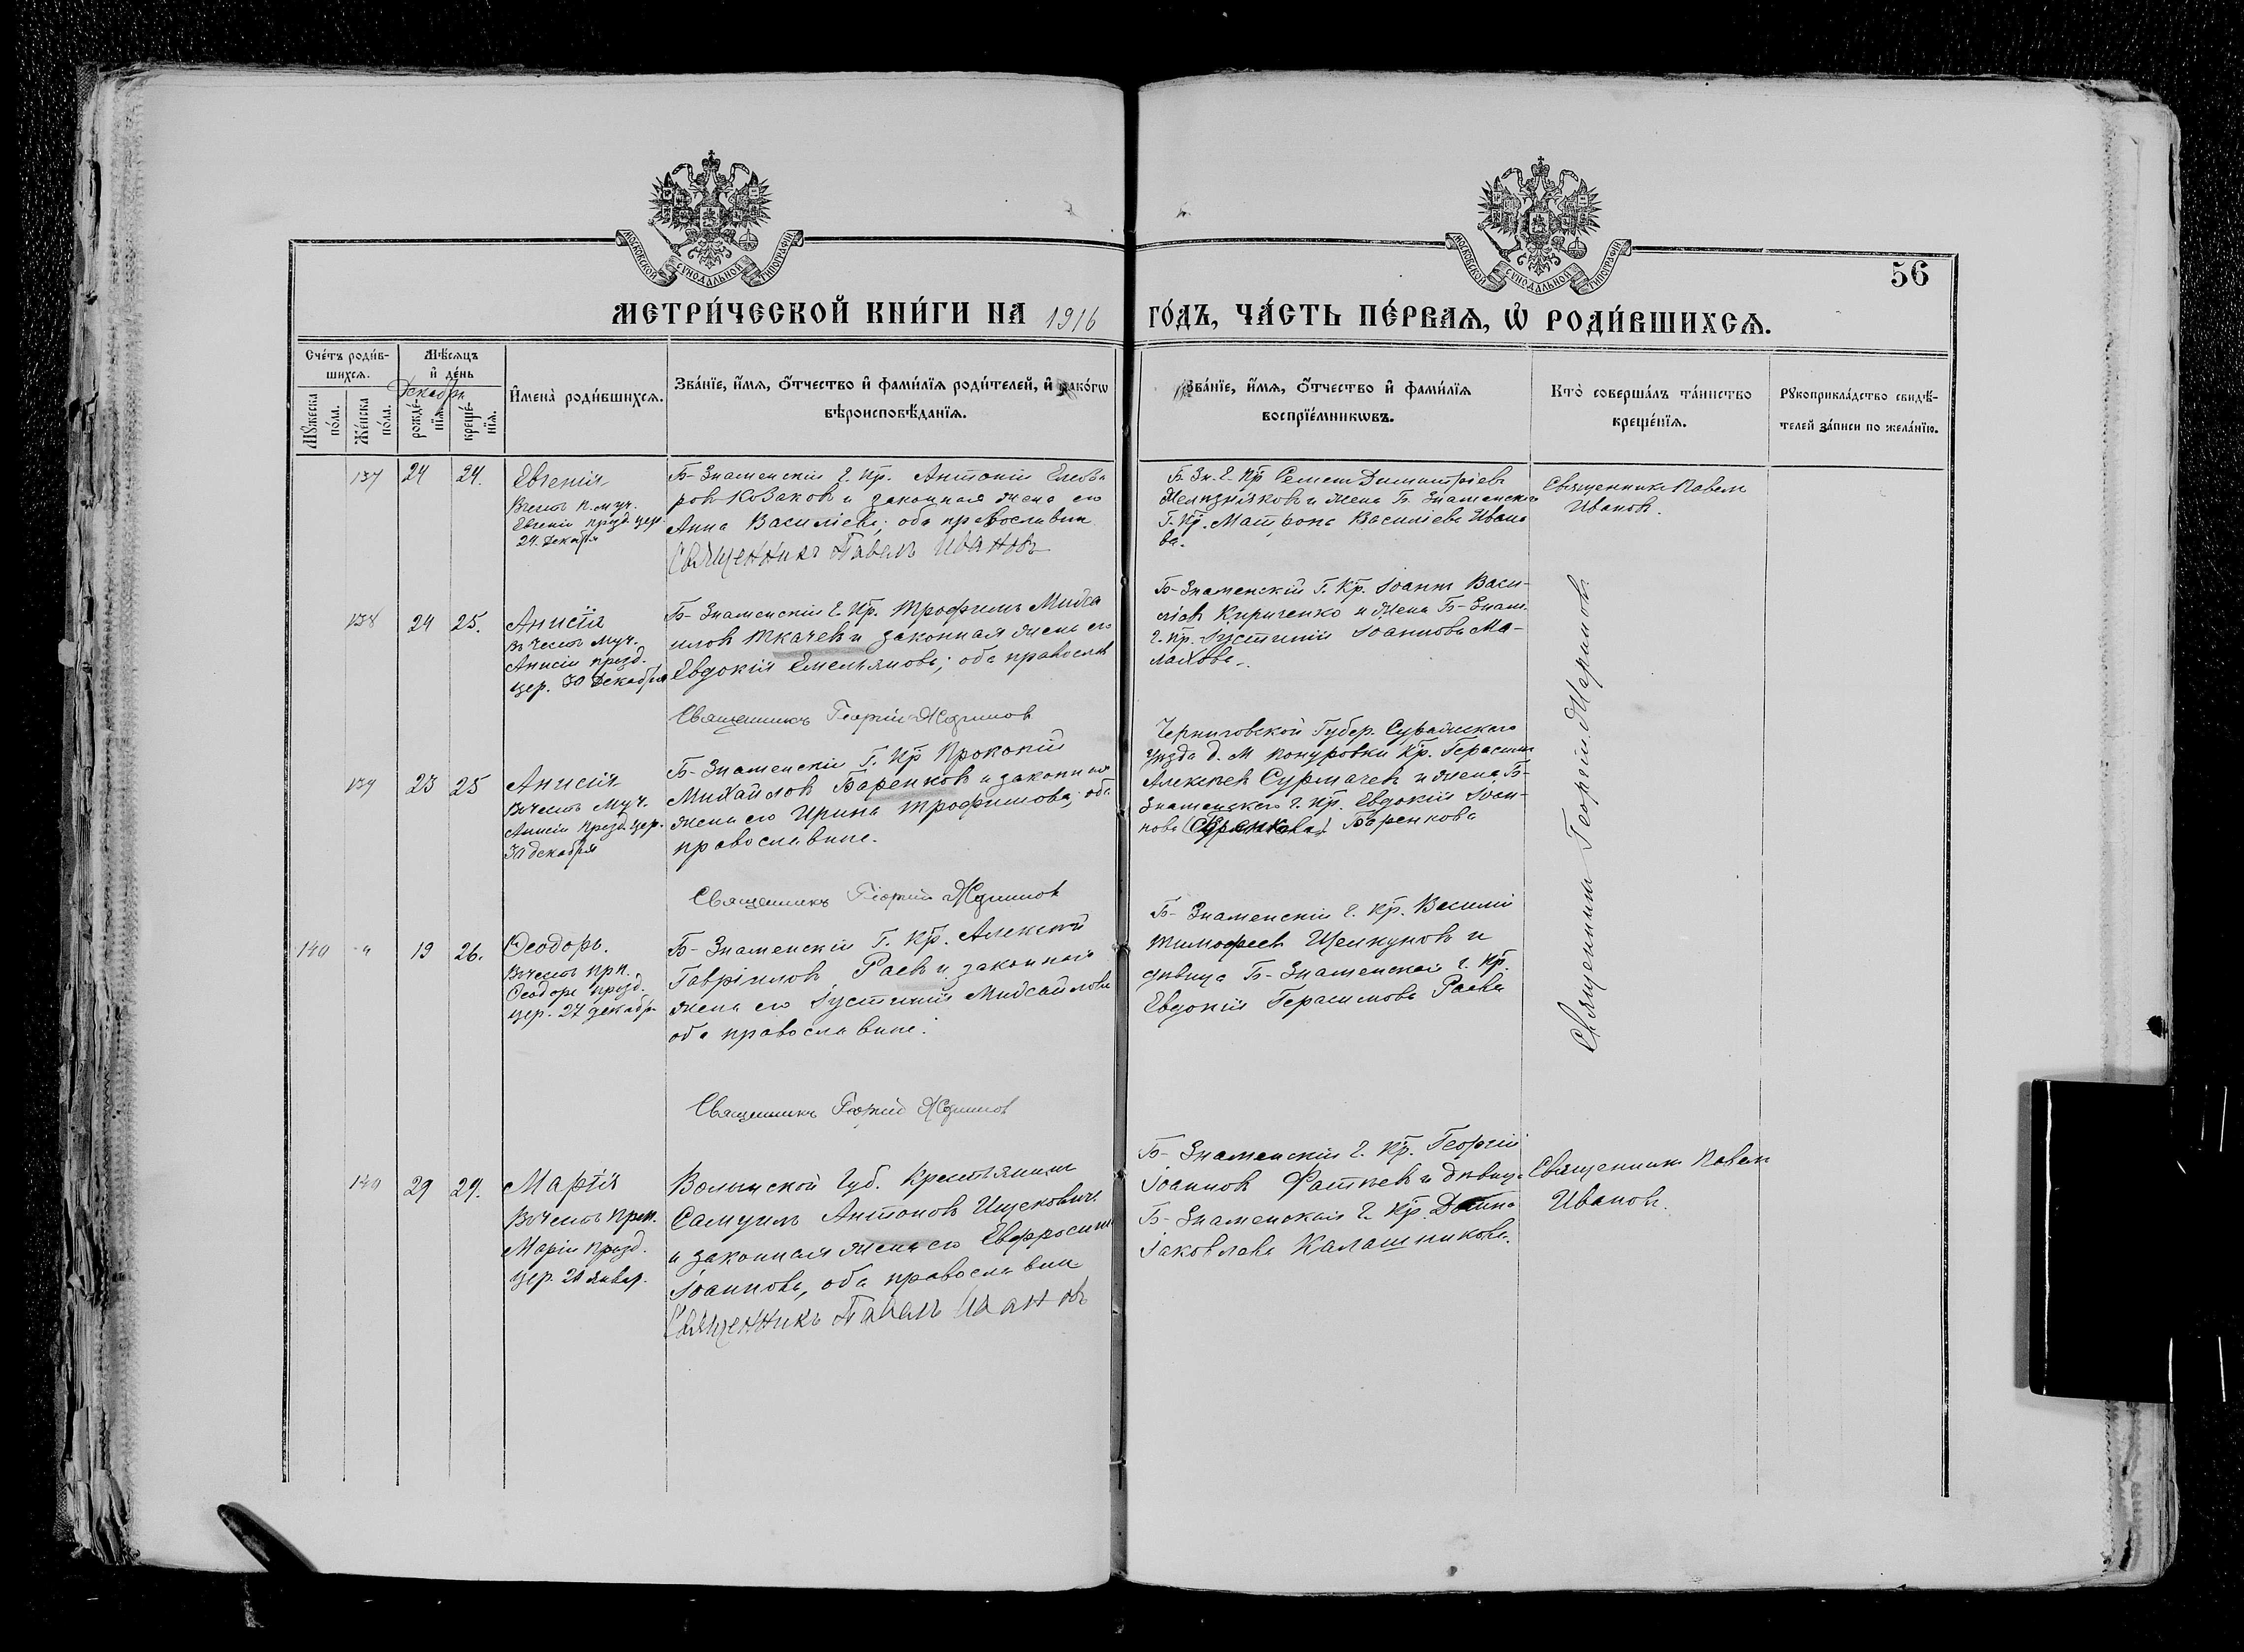 МОСКОВСКОЙ СѴНОДАЛЬНОЙ ТИПОГРАФІИ
МОСКОВСКОЙ СѴНОДАЛЬНОЙ ТИПОГРАФІИ
56
МЕТРИ́ЧЕСКОЙ КНИ́ГИ НА 1916
ГО́ДЪ, ЧА́СТЬ ПЕ́РВАѦ, Ѡ РОДИ́ВШИХСѦ.
Сче́тъ роди́в-
шихсѧ.
Мѣ́сѧцъ
и҆ де́нь
Декабрь
Мꙋ́жеска по́ла.
Же́нска по́ла.
рожде́-
нїѧ.
креще́-
нїѧ.
И҆мена̀ роди́вшихсѧ.
Зва́нїе, и҆́мѧ, ѻ҆́тчество и҆ фами́лїѧ роди́телей, и҆ како́гѡ
вѣроисповѣ́данїѧ.
Зва́нїе, и҆́мѧ, ѻ҆́тчество и҆ фами́лїѧ
воспрїе́мникѡвъ.
Кто̀ соверша́лъ та́инство
креще́нїѧ.
Рꙋкоприкла́дство свидѣ́-
телей за́писи по жела́нїю.
137 24 24. Евгенія
Въ честь п. муч.
Евгеніи празд. цер.
24. Декабря
Б-Знаменскій Г. Кр. Антоній
ровъ Козаковъ и законная жена его
Анна Василіева; оба православн
Священникъ Павелъ Ивановъ
Б. Зн. Г. Кр Семенъ Димитріевъ
и жена Б. Знаменскаго
Г. Кр. Матрона Василіева Ивано
ва.
Священникъ Павелъ
Ивановъ.
138 24 25. Анисія
въ честь муч.
Анисіи празд.
цер. 30 Декабря
Б-Знаменскій Г. Кр. Трофимъ Михаи
иловъ Ткачевъ и законная жена его
Евдокія Емельянова; оба православ
Священникъ Георгій
Б-Знаменскій Г. Кр. Іоаннъ Васи-
ліевъ Кириченко и жена Б-Знам.
Г. Кр. Іустинія Іоаннова Ма-
лахова.
Священникъ Георгій
139 23 25 Анисія
Въ честь Муч.
Анисіи празд. цер.
30 декабря
Б-Знаменскій Г. Кр Прокопій
Михайловъ Баренковъ и законная
жена его Ирина Трофимова; оба
православные.
Священникъ Георгій
Черниговской Губер. Суражскаго
уѣзда д. М Кр. Герасимъ
Алексѣевъ Сурмачевъ и жена Б-
Знаменскаго Г. Кр. Евдокія Іоан-
нова Баренкова
140 " 19 26. Ѳеодоръ.
Въ честь прп.
Ѳеодора празд.
цер. 27 декабря
Б-Знаменскій Г. Кр. Алексѣй
Гавріиловъ Раевъ и законная
жена его Іустинія Михайлова
оба православные.
Священникъ Георгій
Б-Знаменскій Г. Кр. Василій
Тимофеевъ Щелкуновъ и
дѣвица Б-Знаменская Г. Кр.
Евдокія Герасимова Раева
140 29 29. Марія
Въ честь Преп.
Маріи празд.
цер. 26 январ.
Волынской Губ. Крестьянинъ
Самуилъ Антоновъ Ищековичъ
и законная жена его Евфросинія
Іоаннова, оба православны
Священникъ Павелъ Ивановъ
Б-Знаменскій Г. Кр. Георгій
Іоанновъ Фатѣевъ и дѣвица
Б-Знаменская Г. Кр.
Іаковлева Калашникова.
Священникъ Павелъ
Ивановъ.